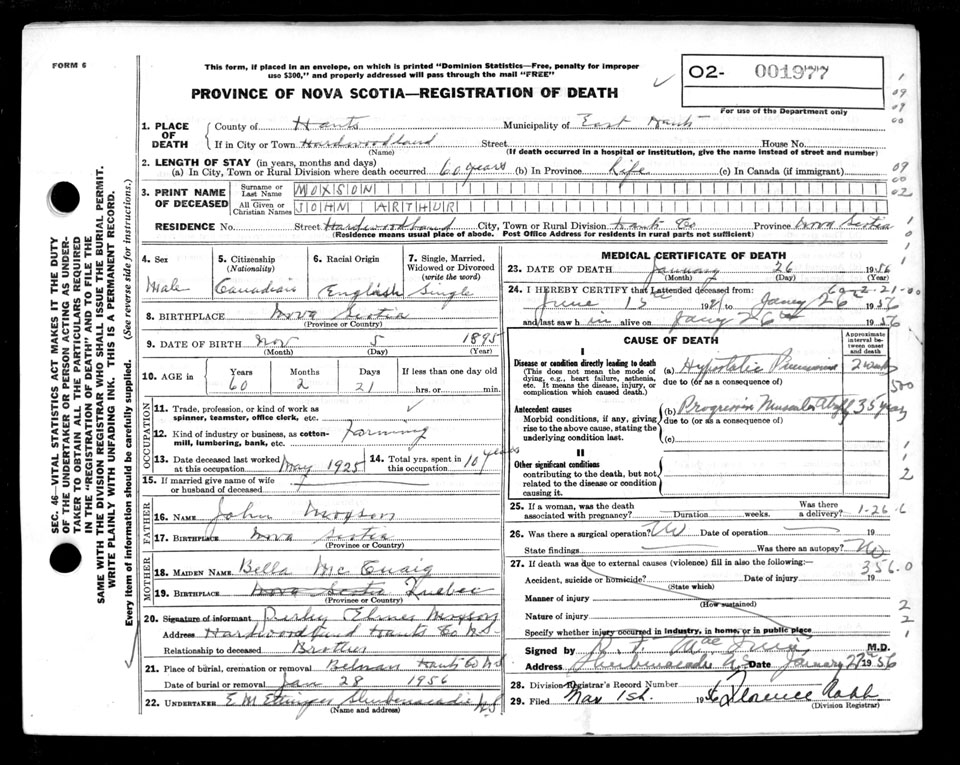 FORM 6
This form, if placed in an envelope, on which is printed "Dominion Statistics—Free, penalty for improper
use $300," and properly addressed will pass through the mail "FREE"
O2- 001977
For use of the Department only
PROVINCE OF NOVA SCOTIA—REGISTRATION OF DEATH
SEC. 46- VITAL STATISTICS ACT MAKES IT THE DUTY
OF THE UNDERTAKER OR PERSON ACTING AS UNDER-
TAKER TO OBTAIN ALL THE PARTICULARS REQUIRED
IN THE "REGISTRATION OF DEATH" AND TO FILE THE
SAME WITH THE DIVISION REGISTRAR WHO SHALL ISSUE THE BURIAL PERMIT.
WRITE PLAINLY WITH UNFADING INK. THIS IS A PERMANENT RECORD.
Every item of information should be carefully supplied. (See reverse side for instructions.)
1. PLACE OF DEATH County of Hants Municipality of East Hants
If in City or Town Hardwoodland Street House No.
(Name) (If death occurred in a hospital or institution, give the name instead of street and number)
2. LENGTH OF STAY (in years, months and days)
(a) In City, Town or Rural Division where death occurred 60 years (b) In Province Life (c) In Canada (if immigrant)
3. PRINT NAME OF DECEASED Surname or Last Name MOXSON
All Given or Christian Names JOHN ARTHUR
RESIDENCE No. Street Hardwoodland City, Town or Rural Division Hants Co Province Nova Scotia
(Residence means usual place of abode. Post Office Address for residents in rural parts not sufficient)
4. Sex Male
5. Citizenship (Nationality) Canadian
6. Racial Origin English
7. Single, Married, Widowed or Divorced (write the word) Single
8. BIRTHPLACE Nova Scotia
(Province or Country)
9. DATE OF BIRTH Nov 5 1895
(Month) (Day) (Year)
10. AGE in Years Months Days If less than one day old
60 2 21 hrs. or min.
OCCUPATION
11. Trade, profession, or kind of work as
spinner, teamster, office clerk, etc.
12. Kind of industry or business, as cotton- Farming
mill, lumbering, bank, etc.
13. Date deceased last worked at this occupation May 1925
14. Total yrs. spent in this occupation 10 years
15. If married give name of wife
or husband of deceased
FATHER
16. NAME John Moxson
17. BIRTHPLACE Nova Scotia
(Province or Country)
MOTHER
18. MAIDEN NAME Bella McCuaig
19. BIRTHPLACE Nova Scotia Quebec
(Province or Country)
20. Signature of informant Elmer Moxson
Address Hardwoodland Hants Co NS
Relationship to deceased Brother
21. Place of burial, cremation or removal Belnan Hants Co NS
Date of burial or removal Jan 28 1956
22. UNDERTAKER E M Ettinger Shubenacadie NS
(Name and address)
MEDICAL CERTIFICATE OF DEATH
23. DATE OF DEATH January 26 1956
(Month) (Day)
24. I HEREBY CERTIFY that I attended deceased from: 60-2-21-00
June 15th to Jany 26th 1956
and last saw h im alive on Jany 26th 1956
CAUSE OF DEATH
Approximate interval between onset and death
I
Disease or condition directly leading to death
(This does not mean the mode of dying, e.g., heart failure, asthenia, etc. It means the disease, injury, or complication which caused death.)
(a) Hypostatic Pneumonia 2 weeks
due to (or as a consequence of)
Antecedent causes
Morbid conditions, if any, giving rise to the above cause, stating the underlying condition last.
(b) Progressive Muscular Atrophy 35 years
due to (or as a consequence of)
(c)
II
Other significant conditions
contributing to the death, but not related to the disease or condition causing it.
25. If a woman, was the death associated with pregnancy? Duration weeks. Was there a delivery? 1-26-6
26. Was there a surgical operation? No Date of operation 19
State findings Was there an autopsy? No
27. If death was due to external causes (violence) fill in also the following:— 356.0
Accident, suicide or homicide? Date of injury 19
(State which)
Manner of injury
(How sustained)
Nature of injury
Specify whether injury occurred in industry, in home, or in public place
Signed by M.D.
Address Shubenacadie Date January 27 1956
28. Division Registrar's Record Number
29. Filed Mar 1st. 1956 Florence Nabb
(Division Registrar)